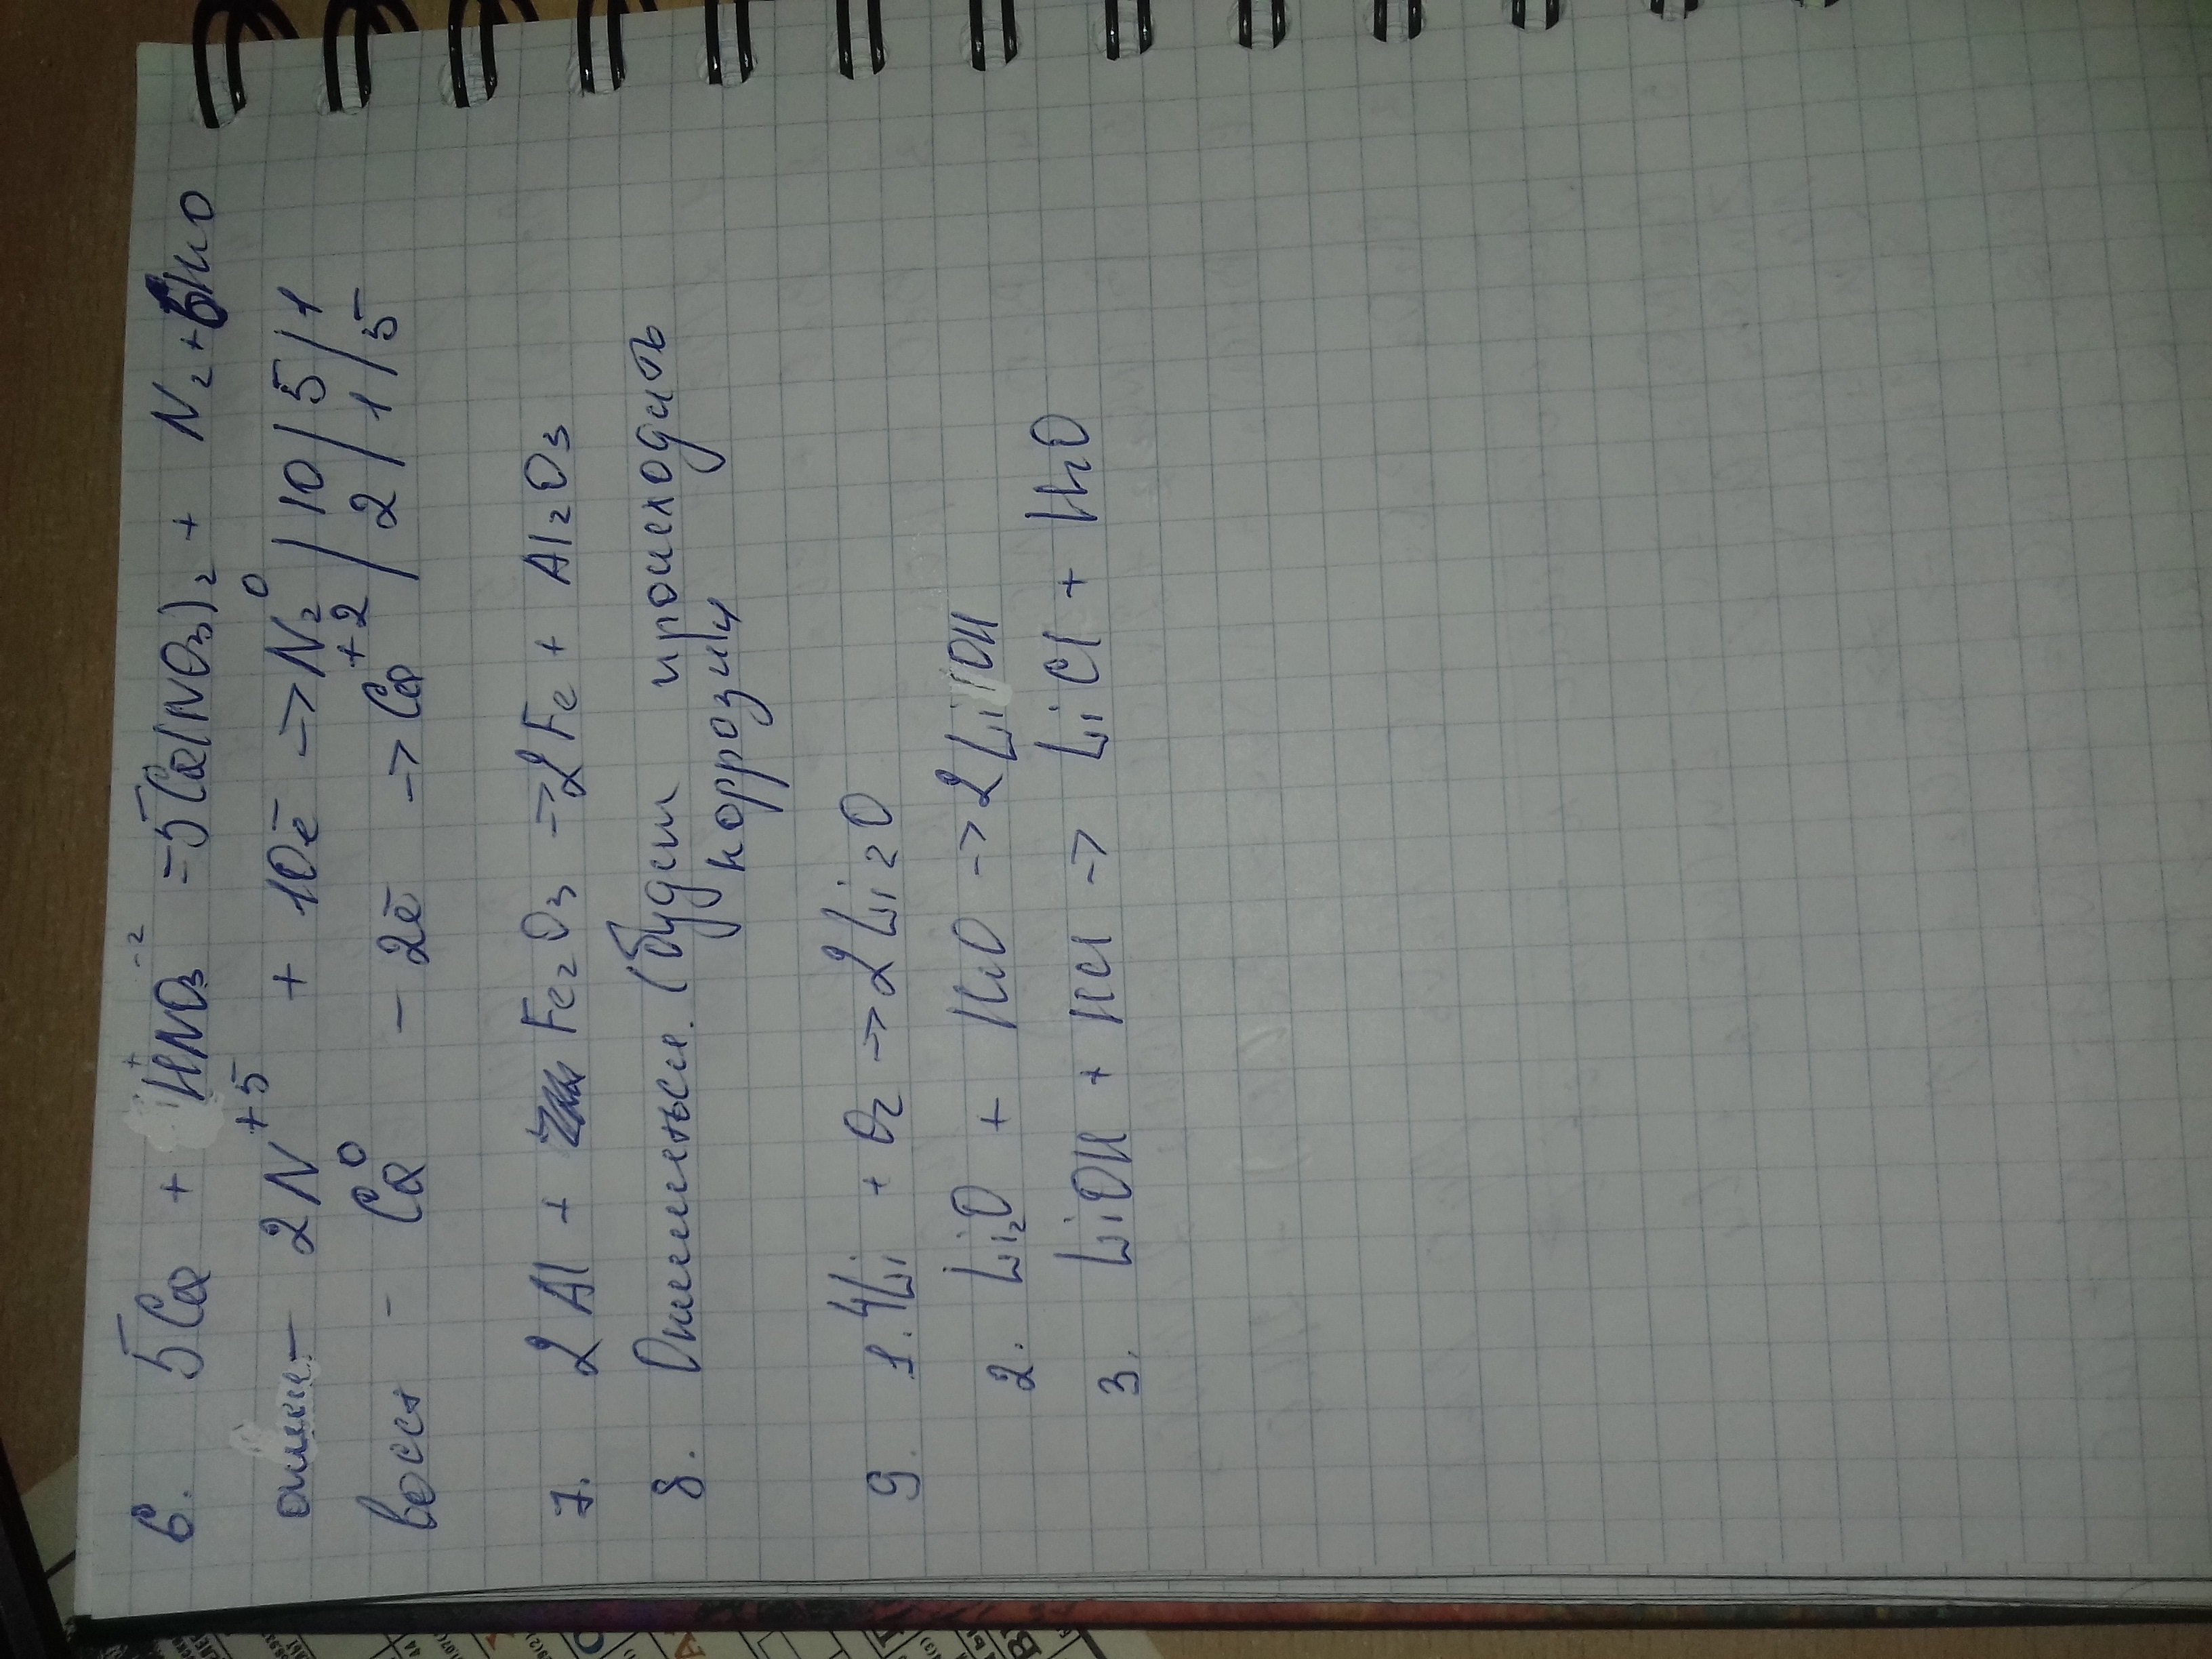 6. 5Ca + HNO₃ = 5Ca(NO₃)₂ + N₂ + 6H₂O
+ -2
окисл - 2N⁺⁵ + 10ē -> N₂⁰ / 10 / 5 / 1
восст - Ca⁰ - 2ē -> Ca⁺² / 2 / 1 / 5
7. 2Al + Fe₂O₃ -> 2Fe + Al₂O₃
8. Окислиться. (будет происходить
коррозия
9. 1. 4Li + O₂ -> 2Li₂O
2. Li₂O + H₂O -> 2LiOH
3. LiOH + HCl -> LiCl + H₂O